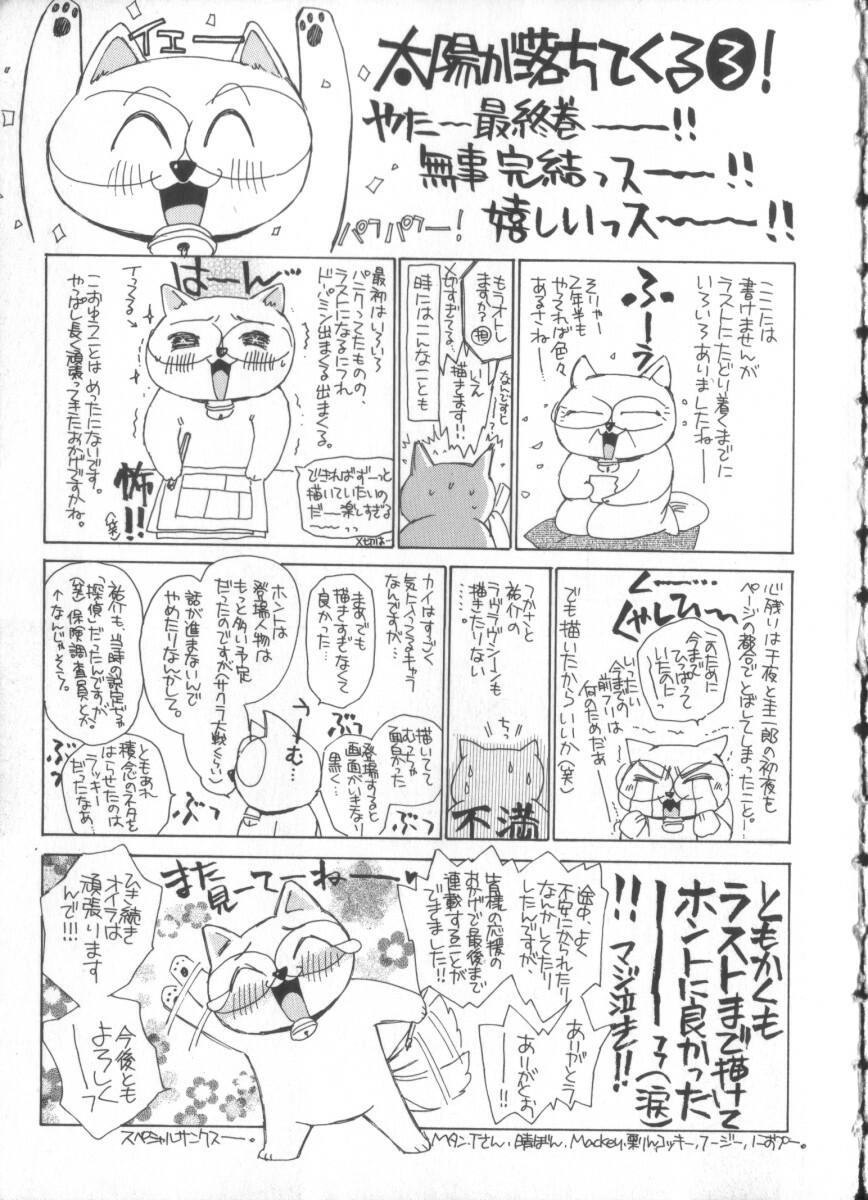 イェー
太陽が落ちてくる③!
やたー最終巻ー!!
無事完結っスー!!
嬉しいっスー!!
パフパフー!
ここには
書けませんが
ラストにたどり着くまでに
いろいろありましたねー
ふーぅ
そりゃー
2年半も
やれば色々
あるさねー
もうオトし
ますか?担
〆切すぎてる…
なんですとーっ?
いえ
描きます!!
時にはこんなことも
最初はいろいろ
パニクってたものの、
ラストになるにつれ
ドパミン出まくる出まくる。
はーん
できればずーっと
描いていたいの
だー楽しすぎる
ーっっ
〆切はー
イっつる
こおゆうことは めったにないです。
やっぱし長く頑張ってきたおかげですかね。
(笑)
怖!!
心残りは千夜と圭一郎の初夜も
ページの都合でとばしてしまったこと!
くーー
くやしひーー
このために
今まで
ひっぱって
いたのにっ
ーっ!
いったい
今までの
前フリは
何のためだぁー
でも描いたからいいか(笑)
つかさと
祐介の
ラヴラヴシーンも
描きたりない
……。
ちっ
不満
カイはすごく
気に入ってるキャラ
なんですが…
まあでも
描きすぎなくて
良かった…
描いてて
むっちゃ
面白かった
登場すると
画面がいきなり
黒く…
ぶっ
ぶつ
うーむ…
ホントは
登場人物は
もっと多い予定
だったのですが(サクラ大戦くらい)
話が進まないんで
やめたりなんかして。
祐介も、当時の設定じゃ
「探偵」だったんですが
(笑)保険調査員とか。
↑なんじゃそら。
ともあれ
積念のネタを
はらせたのは
ラッキー
だったなぁ…
ぶつ
ぶっ
ともかくも
ラストまで描けて
ホントに良かった
ーーっっ(涙)
!!マジ泣き!!
途中、よく
不安になったり
なんかしてたり
したんですが、
皆様の応援の
おかげで最後まで
連載することが
できました!!
ありがとう
ーっ!
ありがとお
ーっ!
また
見ーてーねーー♥
ひき続き
オイラは
頑張ります
んで!!!
今後とも
よろしく
ーっ
スペシャルサンクスー。
Mタン.Tさん、晴ぼん、Mackey、栗りん、コッキー、フージー、におぷー。